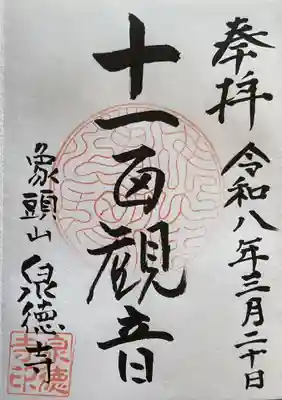 奉拝 令和八年三月二十日
十一面観音
象頭山 泉徳寺
泉徳
寺印